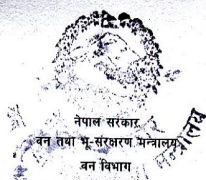 नेपाल सरकार
वन तथा भू-संरक्षण मन्त्रालय
वन विभाग